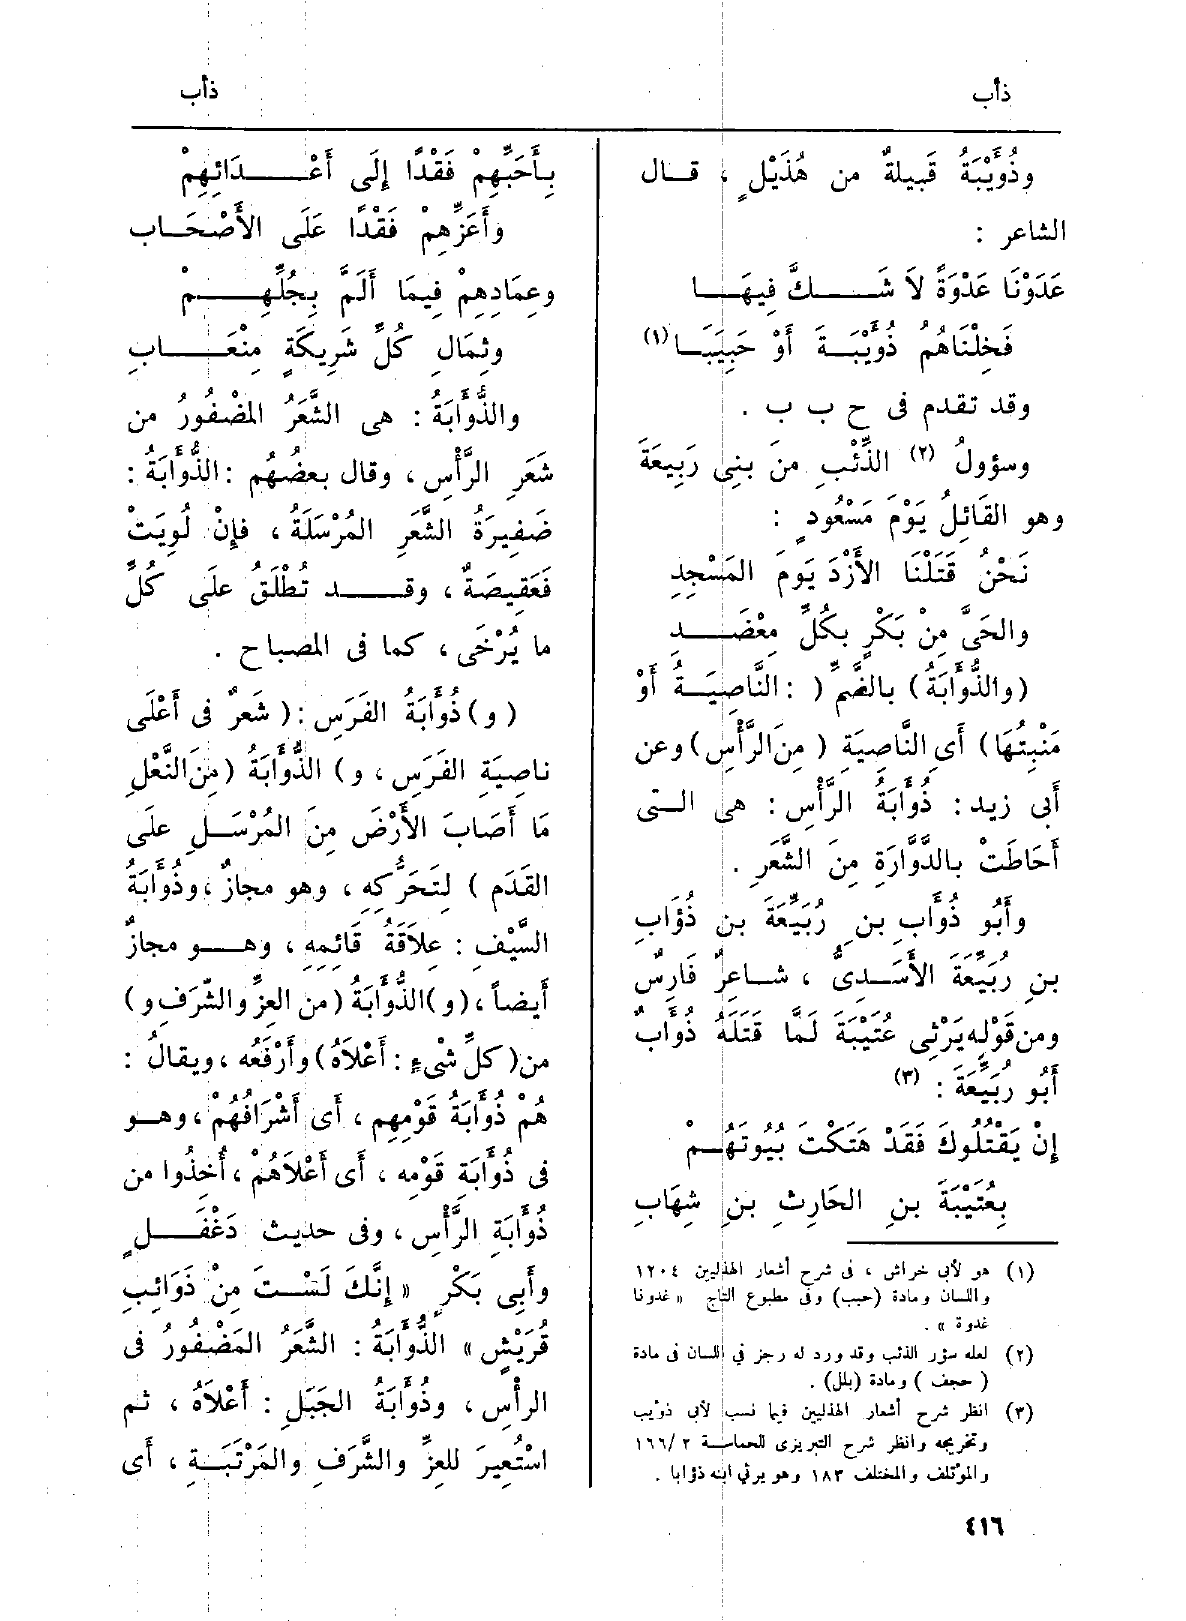 ذأب
ذأب
وذُؤَيْبَةُ قَبِيلةٌ من هُذَيْلٍ ، قال
الشاعر :
عَدَوْنَا عَدْوَةً لاَ شَكَّ فِيهَا
فَخِلْنَاهُمُ ذُؤَيْبَةَ أَوْ حَبِيبَا (١)
وقد تقدم فى ح ب ب .
وسؤولُ (٢) الذِّئْبِ منَ بنِى رَبِيعَةَ
وهو القَائِلُ يَوْمَ مَسْعُودٍ :
نَحْنُ قَتَلْنَا الأَزْدَ يَومَ المَسْجِدِ
والحَىَّ مِنْ بَكْرٍ بكُلِّ مِعْضَدِ
(والذُّوَابَةُ) بالضَّمِّ ( : النَّاصِيَةُ أَوْ
مَنْبِتُهَا) أَىِ النَّاصِيَةِ ( مِنَ الرَّأْسِ) وعن
أَبى زيد : ذُوَابَةُ الرَّأْسِ : هى التى
أَحَاطَتْ بالدَّوَّارَةِ مِنَ الشَّعَرِ .
وأَبُو ذُوَابِ بنِ رُبَيِّعَةَ بن ذُؤَابِ
بنِ رُبَيِّعَةَ الأَسَدِىُّ ، شاعِرٌ فَارِسٌ
ومن قَوْلِه يَرْثِى عُتَيْبَةَ لَمَّا قَتَلَهُ ذُوَابٌ
أَبُو رُبَيِّعَةَ : (٣)
إِنْ يَقْتُلُوكَ فَقَدْ هَتَكْتَ بُيُوتَهُمْ
بِعُتَيْبَةَ بنِ الحَارِثِ بنِ شِهَابِ
(١) هو لأبى خراش ، فى شرح أشعار الهذليين ١٢٠٤
واللسان ومادة (حبب) وفى مطبوع التاج « غدونا
غدوة » .
(٢) لعله سؤر الذئب وقد ورد له رجز في اللسان فى مادة
( حجف ) ومادة (بلل) .
(٣) انظر شرح أشعار الهذليين فيما نسب لأبى ذؤيب
وتخريجه وانظر شرح التبريزى للحماسة ١٦٦/٢
والمؤتلف والمختلف ١٨٣ وهو يرثي ابنه ذؤابا .
بِأَحَبِّهِمْ فَقْدًا إِلَى أَعْدَائِهِمْ
وأَعَزِّهِمْ فَقْدًا عَلَى الأَصْحَابِ
وعِمَادِهِمْ فِيمَا أَلَمَّ بِجُلِّهِمْ
وثِمَالِ كُلِّ شَرِيكَةٍ مِنْعَابِ
والذُّوَابَةُ : هى الشَّعَرُ المَضْفُورُ من
شَعَرِ الرَّأْسِ ، وقال بعضُهُم : الذُّوَابَةُ :
ضَفِيرَةُ الشَّعَرِ المُرْسَلَةُ ، فإِنْ لُوِيَتْ
فَعَقِيصَةٌ ، وقد تُطْلَقُ علَى كُلِّ
ما يُرْخَى ، كما فى المصباح .
( و) ذُوَابَةُ الفَرَسِ : ( شَعَرٌ فى أَعْلَى
ناصِيَةِ الفَرَسِ ، و) الذُّوَابَةُ (مِنَ النَّعْلِ
مَا أَصَابَ الأَرْضَ مِنَ المُرْسَلِ علَى
القَدَمِ ) لِتَحَرُّكِهِ ، وهو مجازٌ ، وذُوَابَةُ
السَّيْفِ : عِلاَقَةُ قَائِمِهِ ، وهو مجازٌ
أَيضاً ، (و) الذُّوَابَةُ (من العِزِّ والشَّرَفِ و)
من (كلِّ شْىءٍ : أَعْلاَهُ) وأَرْفَعُه ، ويقالُ :
هُمْ ذُوَابَةُ قَوْمِهِم ، أَى أَشْرَافُهُمْ ، وهو
فى ذُوَابَةِ قَوْمِه ، أَى أَعْلاَهُمْ ، أُخِذُوا من
ذُوَابَةِ الرَّأْسِ ، وفى حديث دَغْفَلٍ
وأَبِى بَكْرٍ « إِنَّكَ لَسْتَ مِنْ ذَوَائِبِ
قُرَيْشٍ » الذُّوَابَةُ : الشَّعَرُ المَضْفُورُ فى
الرأْسِ ، وذُوَابَةُ الجَبَلِ : أَعْلاَهُ ، ثم
اسْتُعِيرَ للعِزِّ والشَّرَفِ والمَرْتَبَةِ ، أَى
٤١٦